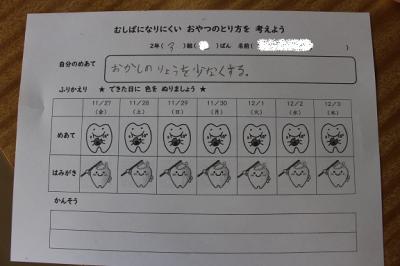 むしばになりにくい おやつのとり方を 考えよう
2年( 3 )組( )ばん 名前( )
自分のめあて
おかしのりょうを少なくする。
ふりかえり ★ できた日に 色を ぬりましょう ★
11/27 11/28 11/29 11/30 12/1 12/2 12/3
(金) (土) (日) (月) (火) (水) (木)
めあて
はみがき
かんそう